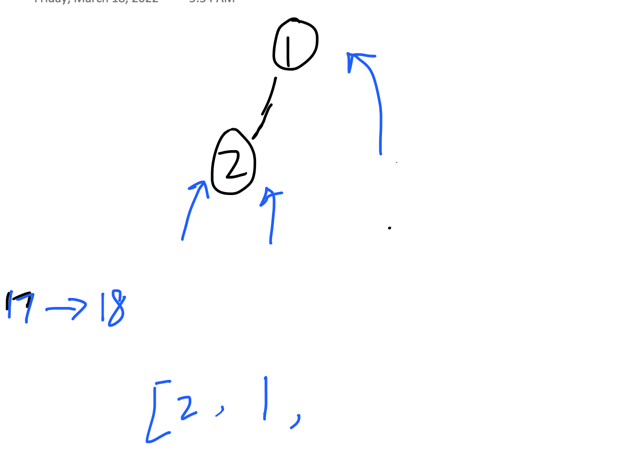 Friday, March 18, 2022
1
2
17 → 18
[2, 1,